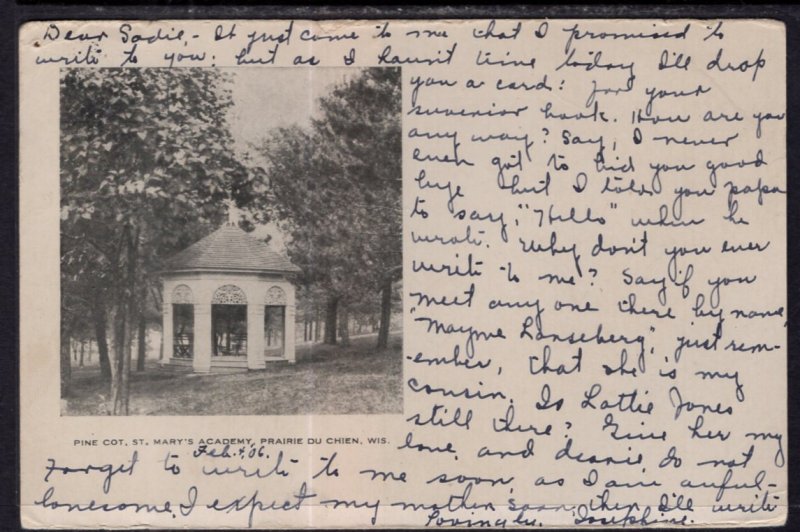 Dear Sadie,- It just came to me that I promised to
write to you; but as I haven't time today I'll drop
you a card: for your
souvenior book. How are you
any way? Say, I never
even got to bid you good
bye but I told you papa
to say, "Hello" when he
wrote. Why don't you ever
write to me? Say if you
meet any one there by name,
"Mayme Lanseberg," just rem-
ember, that she is my
cousin. Is Lottie Jones
still there? Give her my
love, and dearie do not
PINE COT, ST. MARY'S ACADEMY, PRAIRIE DU CHIEN, WIS.
Feb. 4, '06.
Forget to write to me soon, as I am awful-
lonesome. I expect my mother soon, then I'll write
Lovingly. Josephine.